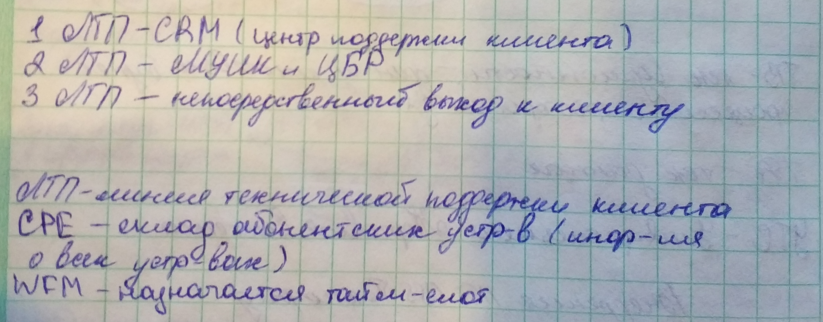 1 ЛТП - CRM (центр поддержки клиента)
2 ЛТП - МУИК и ЦБР
3 ЛТП - непосредственный выход к клиенту
ЛТП - линия технической поддержки клиента
CPE - склад абонентских устр-в (инфор-ия
о всех устр-вах)
WFM - назначается тайм-слот